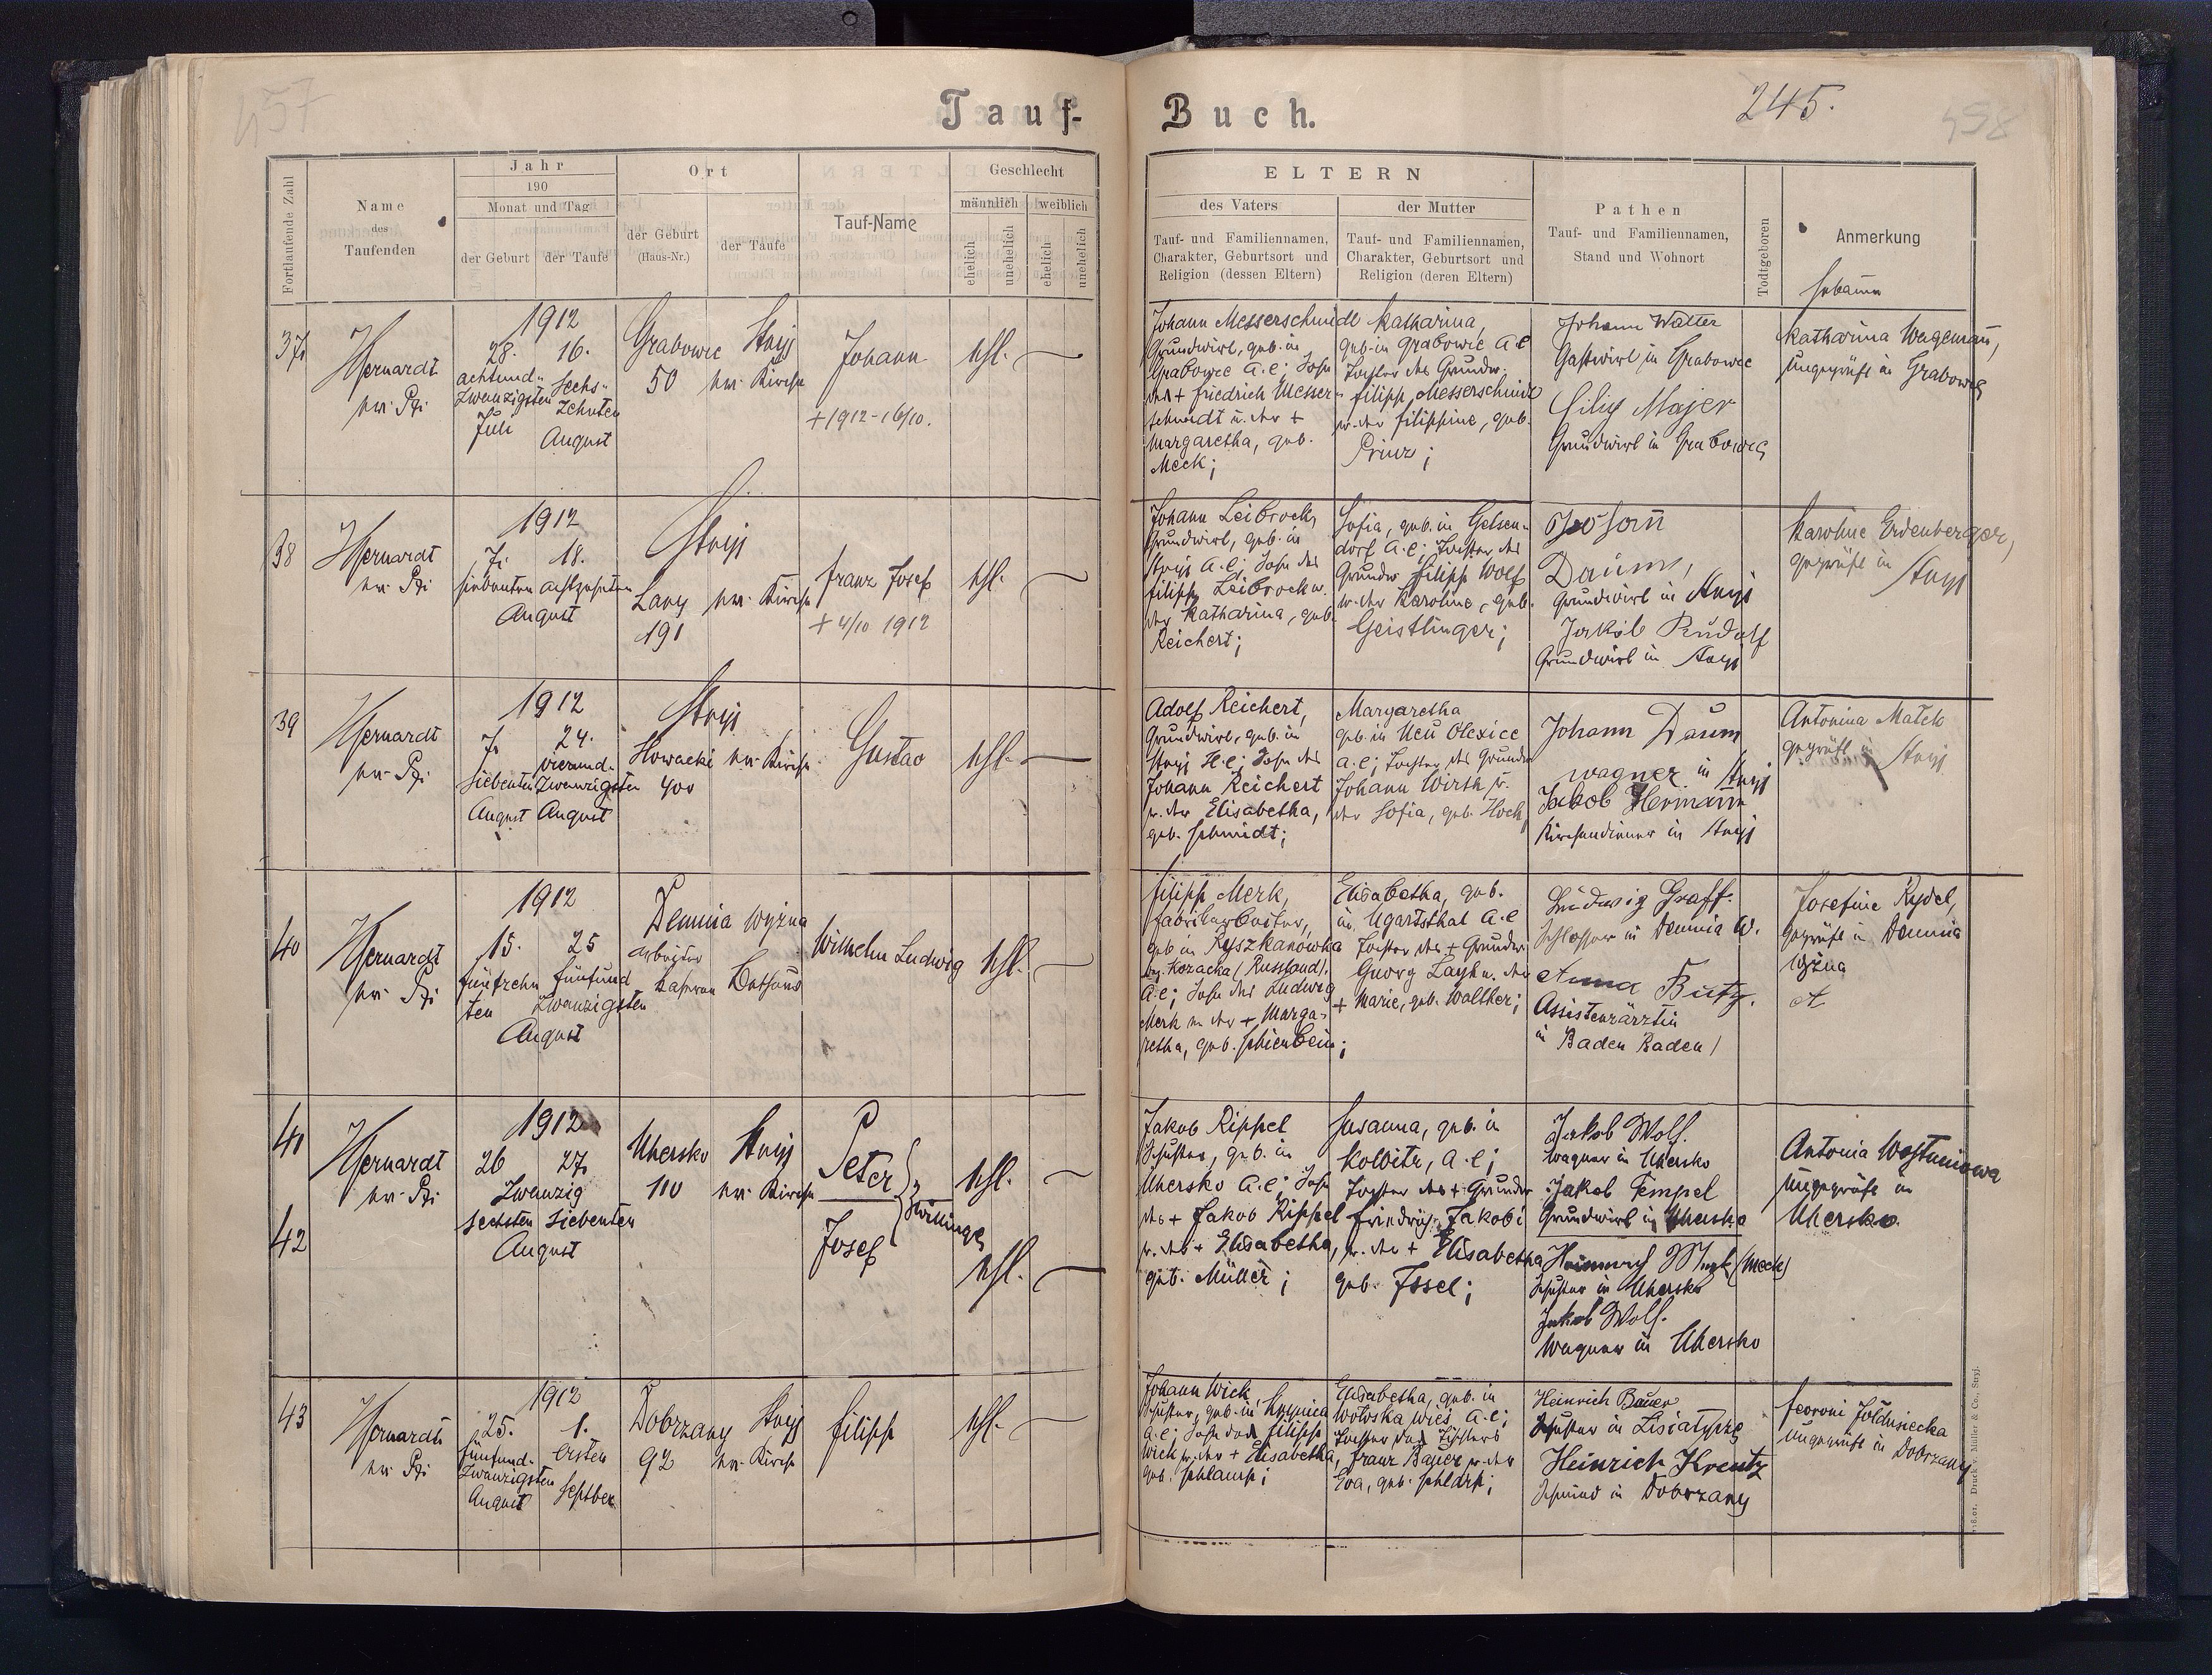 457
Tauf-
Buch.
245.
458
Fortlaufende Zahl
Name
des
Taufenden
Jahr
190
Monat und Tag
der Geburt
der Taufe
Ort
der Geburt
(Haus-Nr.)
der Taufe
Tauf-Name
Geschlecht
männlich
weiblich
ehelich
unehelich
ehelich
unehelich
ELTERN
des Vaters
der Mutter
Tauf- und Familiennamen,
Charakter, Geburtsort und
Religion (dessen Eltern)
Tauf- und Familiennamen,
Charakter, Geburtsort und
Religion (deren Eltern)
Pathen
Tauf- und Familiennamen,
Stand und Wohnort
Todtgeboren
Anmerkung
Hebamme
37
1912
28. 16.
achtund-
zwanzigsten
Juli
Sechs-
zehnten
August
Grabowce
50
Stryj
Kirche
Johann
+1912-16/10.
ehl.
Johann Messerschmidt
Grundwirt, geb. in
Grabowce A.C; Sohn
des + Friedrich Messer-
schmidt u. der +
Margaretha, geb.
Meck;
Katharina,
geb. in Grabowce A.C
Tochter des Grundw.
Filipp Messerschmidt
u. der Filippine, geb.
Prinz;
Johann Walter
Gastwirt in Grabowce
Filip Majer
Grundwirt in Grabowce
Katharina Wagemann,
ungeprüft in Grabowce
38
1912
7. 18.
siebenten achtzehnten
August
Stryj
Lany
191
Kirche
Franz Josef
+ 4/10 1912
ehl.
Johann Leibrock,
Grundwirt, geb. in
Stryj A.C; Sohn des
Filipp Leibrock u.
der Katharina, geb.
Reichert;
Sofia, geb. in Gelsen-
dorf A.C; Tochter des
Grundw. Filipp Wolf
u. der Karoline, geb.
Geistlinger;
Johann
Daum,
Grundwirt in Stryj
Jakob Rudolf
Grundwirt in Stryj
Karoline Eidenberger,
geprüft in
Stryj
39
1912
7. 24.
siebenten
August
vierund-
zwanzigsten
August
Stryj
400
Kirche
Gustav
ehl.
Adolf Reichert,
Grundwirt, geb. in
Stryj H.C; Sohn des
Johann Reichert
u. der Elisabetha,
geb. Schmidt;
Margaretha
geb. in Neu Olexice
A.C; Tochter des Grundw.
Johann Wirth u.
der Sofia, geb. Hoch;
Johann Daum
Wagner in Stryj
Jakob Hermann
Kirchendiener in Stryj
Antonina Malek
geprüft in Stryj
40
1912
15. 25
fünfzehn
ten
fünfund
zwanzigsten
August
Demnia wyżna
Arbeiter
Bethaus
Wilhelm Ludwig
ehl.
Filipp Merk,
Fabrikarbeiter,
geb. in Kyszkanowka
Kozacka (Russland).
A.C; Sohn des Ludwig
Merk u. der + Marga-
retha, geb. Schienbein;
Elisabetha, geb.
in Ugartsthal A.C
Tochter des + Grundw.
Georg Layh u. der
+ Marie, geb. Walther;
Ludwig Graff.
Schlosser in Demnia W.
Anna Butz.
Assistenzärztin
in Baden Baden
Josefine Rydel,
geprüft in Demnia
wyżna
41
42
1912
26 27.
Zwanzig
sechsten siebenten
August
Uhersko
110
Stryj
Kirche
Peter
Josef
Zwillinge
ehl.
ehl.
Jakob Rippel
Schuster, geb. in
Uhersko A.C; Sohn
des + Jakob Rippel
u. der + Elisabetha,
geb. Müller;
Susanna, geb. in
Kolbitz, A.C;
Tochter des + Grundw
Friedrich Jakobi
u. der + Elisabetha
geb. Issel;
Jakob Wolf.
Wagner in Uhersko
Jakob Tempel
Grundwirt in Uhersko
Heinrich (Meck)
Schuster in Uhersko
Jakob Wolf.
Wagner in Uhersko
Antonia
ungeprüft in
Uhersko
43
1912
25. 1.
fünfund-
zwanzigsten
August
Ersten
Septber
Dobrzany
92
Stryj
Kirche
Filipp
ehl.
Johann Wick
Schuster, geb. in
A.C; Sohn des Filipp
Wick u. der + Elisabetha,
geb. Schlamp;
Elisabetha, geb. in
Wolowska wies A.C;
Tochter des Tischlers
Franz Bauer u. der
Eva, geb.
Heinrich Bauer
Schuster in Lisiatycze
Heinrich Kreutz
Schmied in Dobrzany
ungeprüft in Dobrzany
Druck v. Müller & Co., Stryj.